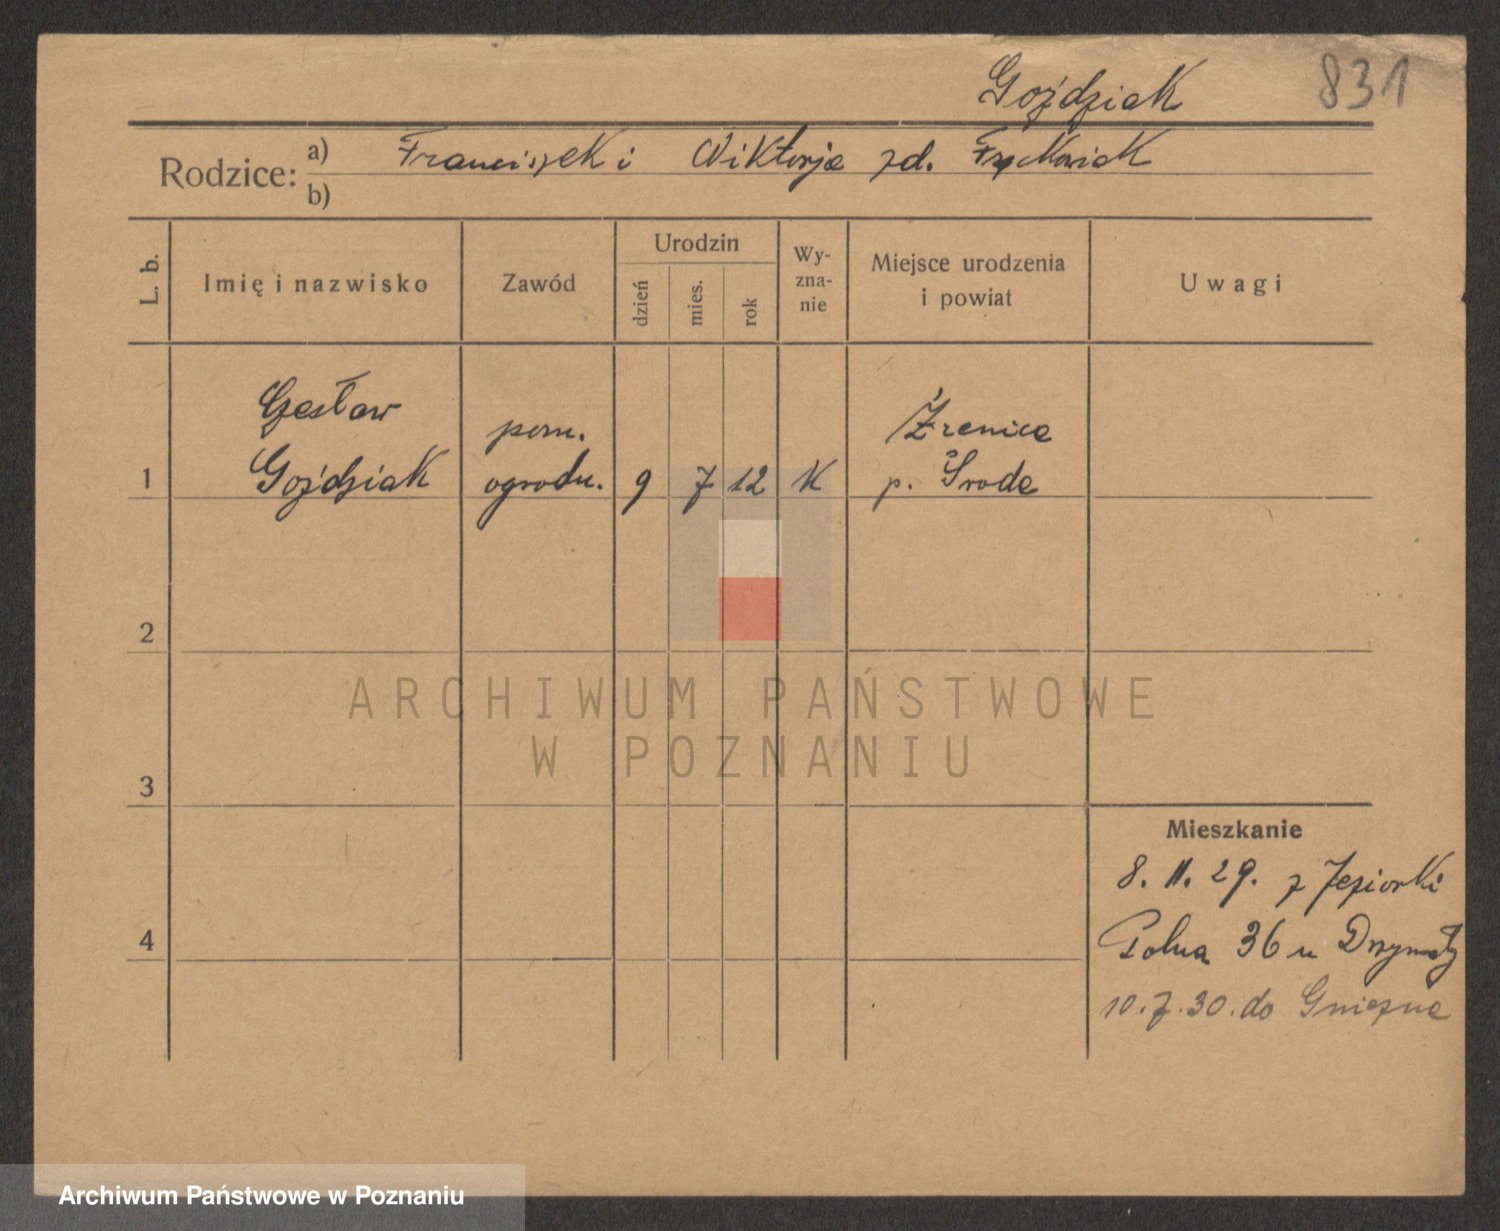 Goździak 831
Rodzice: a) Franciszek i Wiktorja zd. Frąckowiak
b)
L. b. Imię i nazwisko Zawód Urodzin dzień mies. rok Wy-zna-nie Miejsce urodzenia i powiat Uwagi
Czesław pom. Źrenica
1 Goździak ogrodn. 9 7 12 K p. Środa
2
ARCHIWUM PAŃSTWOWE
W POZNANIU
3
Mieszkanie
8. 11. 29. z Jeziorki
4 Polna 36 u Drzymały
10. 7. 30. do Gniezna
Archiwum Państwowe w Poznaniu